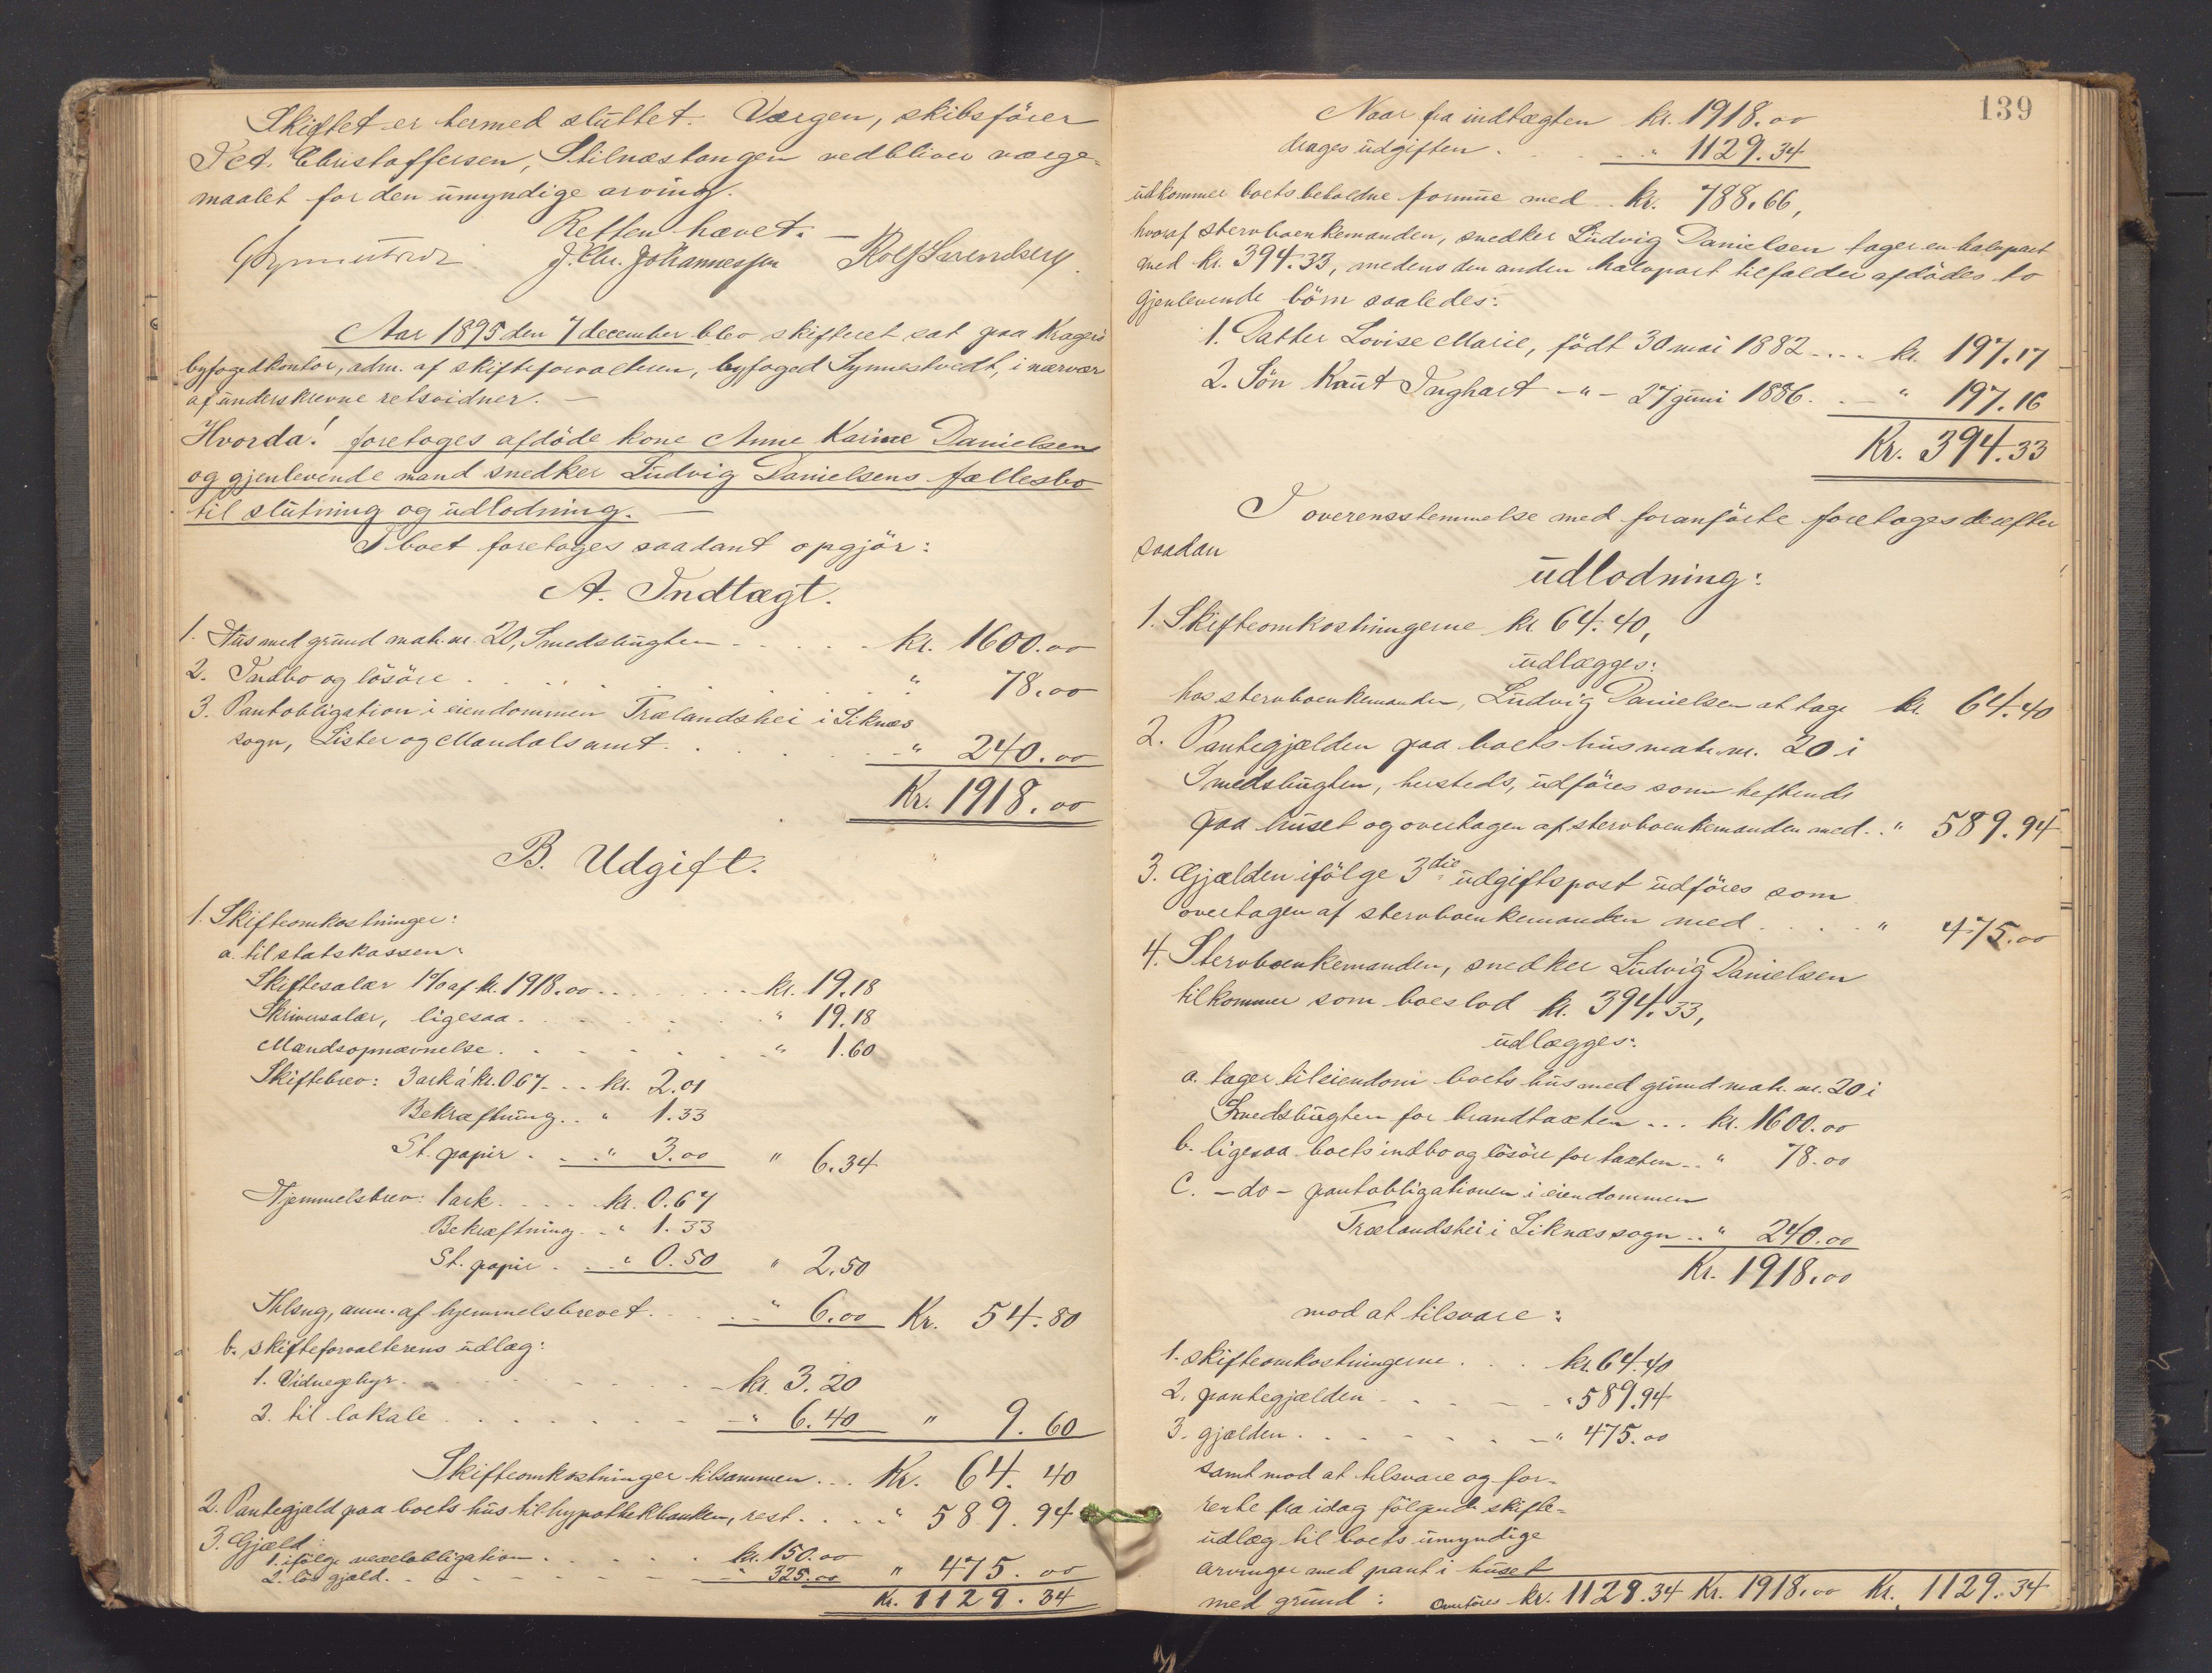 Skiftet er hermed sluttet. Værgen, skibsfører
Ped. Christoffersen, Stilnæstangen vedbliver værge-
maalet for den umyndige arving.
Retten hævet. —
J. Chr. Johannessen
Aar 1895 den 7 december blev skifteret sat paa Kragerø
byfogedkontor, adm. af skifteforvalteren, byfoged Synnestvedt, i nærvær
af underskrevne retsvidner. —
Hvorda! foretoges afdöde kone Anne Karine Danielsens
og gjenlevende mand snedker Ludvig Danielsens fællesbo
til slutning og udlodning. —
I boet foretoges saadant opgjör:
A. Indtægt.
1. Hus med grund matr. nr. 20, Smedsbugten . . . . . kr. 1600.00
2. Indbo og lösöre . . . . . . . " 78.00
3. Pantobligation i eiendommen Trælandshei i Liknæs
sogn, Lister og Mandals amt. . . . . - " 240.00
Kr. 1918.00
B. Udgift.
1. Skifteomkostninger:
a. til statskassen:
Skiftesalær 1% af kr. 1918.00 . . . . . . kr. 19.18
Skriversalær, ligesaa . . . . . . " 19.18
Mændsopnævnelse . . . . . . . " 1.60
Skiftebrev: 3 ark á kr. 0.67 . . . kr. 2.01
Bekræftning . . " 1.33
St. papir . . . " 3.00 " 6.34
Hjemmelsbrev: 1 ark . . . . kr. 0.67
Bekræftning . . " 1.33
St. papir . . . " 0.50 " 2.50
Thlsng, anm. af hjemmelsbrevet . . . . " 6.00 Kr. 54.80
b. skifteforvalterens udlæg:
1. Vidnegebyr . . . . . . . . kr. 3.20
2. til lokale . . . . . . . . - " 6.40 " 9.60
Skifteomkostninger tilsammen . . . Kr. 64.40
2. Pantegjæld paa boets hus til hypothekbanken, rest . . . . " 589.94
3. Gjæld
1. ifölge vexelobligation . . . . . . kr. 150.00
2. lös gjæld . . . . . . . . - " 325.00 " 475.00
Kr. 1129.34
139
Naar fra indtægten kr. 1918.00
drages udgiften . . . . . " 1129.34
udkommer boets beholdne formue med . . kr. 788.66,
hvoraf stervboenkemanden, snedker Ludvig Danielsen tager en halvpart
med kr. 394.33, medens den anden halvpart tilfalder afdödes to
gjenlevende börn saaledes:
1. Datter Lovise Marie, födt 30 mai 1882 . . . . kr. 197.17
2. Sön Knut Inghart - " - 27 juni 1886 . . . - " 197.16
Kr. 394.33
I overensstemmelse med foranförte foretoges derefter
saadan
udlodning:
1. Skifteomkostningerne kr. 64.40,
udlægges:
hos stervboenkemanden, Ludvig Danielsen at tage kr. 64.40
2. Pantegjælden paa boets hus matr. nr. 20 i
Smedsbugten, hersteds, udföres som heftende
paa huset og overtagen af stervboenkemanden med . . " 589.94
3. Gjælden ifölge 3die udgiftspost udföres som
overtagen af stervboenkemanden med . . . . " 475.00
4. Stervboenkemanden, snedker Ludvig Danielsen
tilkommer som boeslod kr. 394.33,
udlægges:
a. tager til eiendom boets hus med grund matr. nr. 20 i
Smedsbugten for brandtaxten . . . kr. 1600.00
b. ligesaa boets indbo og lösöre for taxten . . " 78.00
c. - do - pantobligationen i eiendommen
Trælandshei i Liknæs sogn . . " 240.00
Kr. 1918.00
mod at tilsvare:
1. skifteomkostningerne . . . kr. 64.40
2. pantegjælden . . . . . . " 589.94
3. gjælden . . . . . . . - " 475.00
samt mod at tilsvare og for-
rente fra idag fölgende skifte-
udlæg til boets umyndige
arvinger med pant i huset
med grund: Overföres kr. 1129.34 Kr. 1918.00 Kr. 1129.34